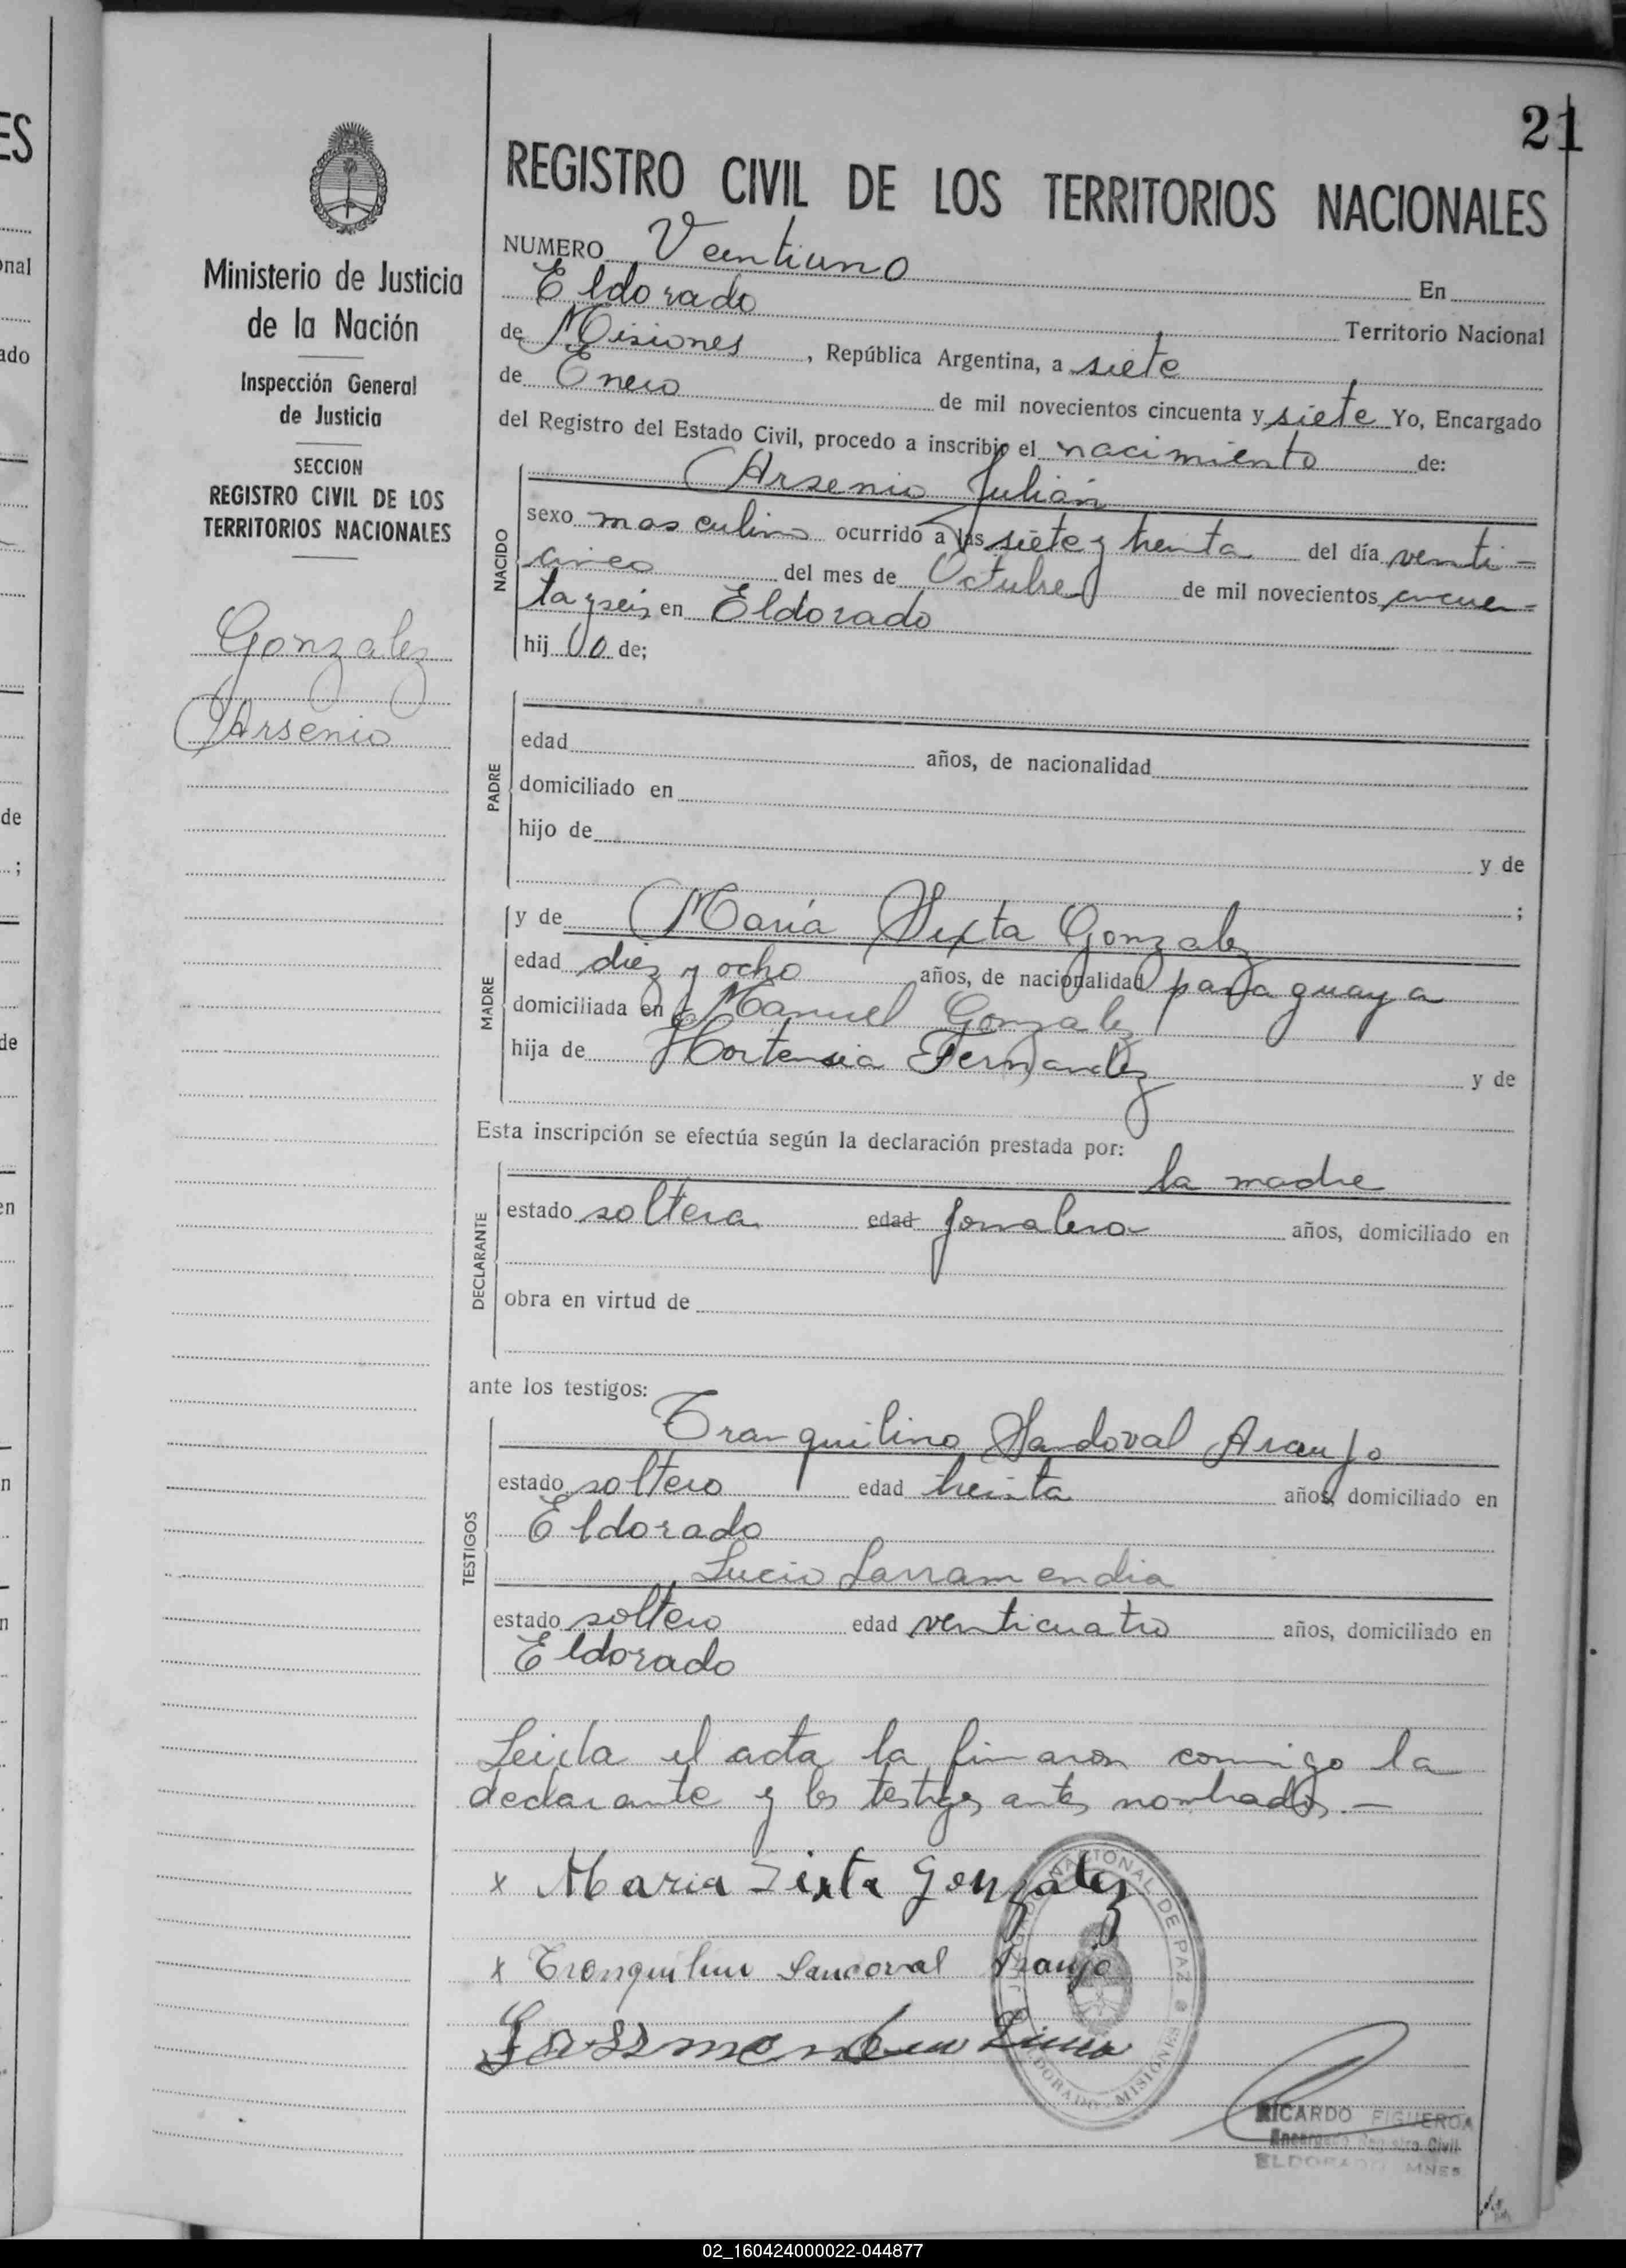 21
REGISTRO CIVIL DE LOS TERRITORIOS NACIONALES
Ministerio de Justicia
de la Nación
Inspección General
de Justicia
SECCION
REGISTRO CIVIL DE LOS
TERRITORIOS NACIONALES
Gonzalez
Arsenio
NUMERO Ventiuno En
Eldorado Territorio Nacional
de Misiones, República Argentina, a siete
de Enero de mil novecientos cincuenta y siete Yo, Encargado
del Registro del Estado Civil, procedo a inscribir el nacimiento de:
NACIDO
Arsenio Julián
sexo masculino ocurrido a las siete y treinta del día venti=
cinco del mes de Octubre de mil novecientos cincuen=
ta y seis en Eldorado
hijo de;
PADRE
edad años, de nacionalidad
domiciliado en
hijo de y de
;
MADRE
y de María Sixta Gonzalez
edad diez y ocho años, de nacionalidad paraguaya
domiciliada en Manuel Gonzalez
hija de Hortensia Fernandez y de
Esta inscripción se efectúa según la declaración prestada por:
DECLARANTE
la madre
estado soltera edad jornalera años, domiciliado en
obra en virtud de
ante los testigos:
TESTIGOS
Tranquilino Sandoval Araujo
estado soltero edad treinta años, domiciliado en
Eldorado
Lucio Larramendia
estado soltero edad venticuatro años, domiciliado en
Eldorado
Leida el acta la firmaron conmigo la
declarante y los testigos antes nombrados.—
x Maria Sixta Gonzalez
x Tranquilino Sandoval Araujo
NACIONAL DE PAZ
ELDORADO - MISIONES
RICARDO FIGUEROA
Encargado Registro Civil
ELDORADO MNES.
02_160424000022-044877